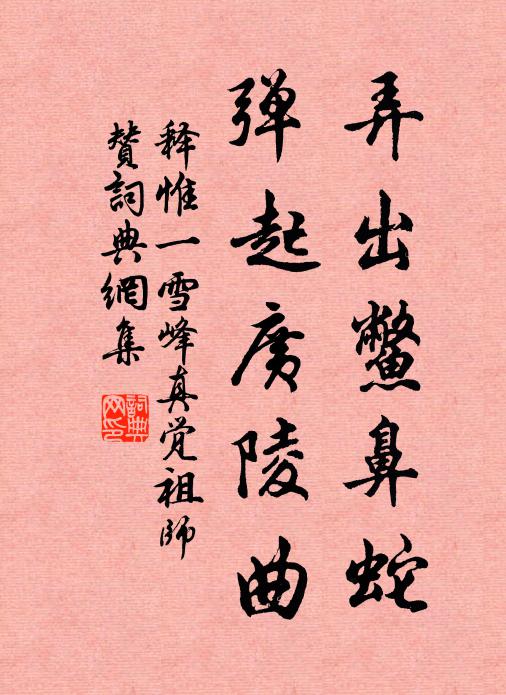 弄出鳖鼻蛇
弹起广陵曲
释惟一雪峰真觉祖师
赞詞典網集
詞典网印